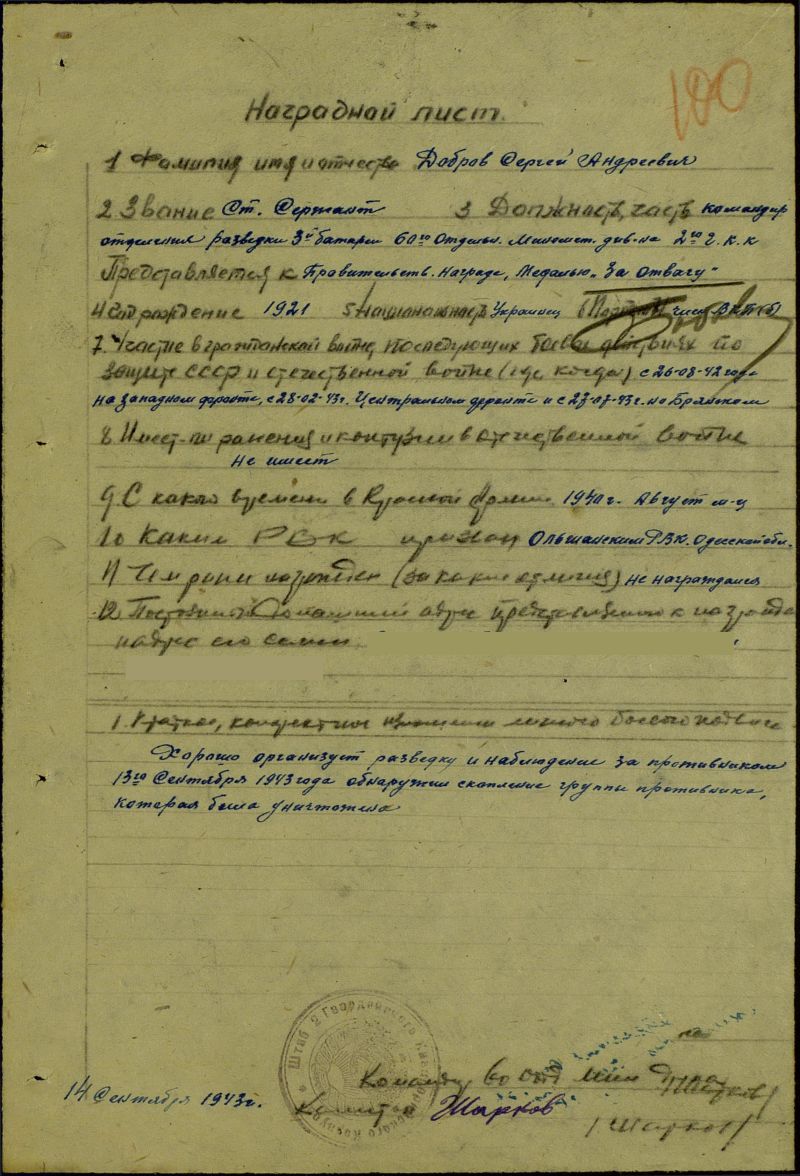 100
Наградной лист.
1 Фамилия имя и отчество Добров Сергей Андреевич
2 Звание Ст. Сержант 3 Должность, часть командир
отделения разведки 3й батареи 60го Отдельн. Миномет. див-на 2го г. к. к
Представляется к Правительств. Награде, Медалью „За отвагу"
4 Год рождение 1921 5 Национальность Украинец ВКП(б)
7. Участие в гражданской войне, последующих боевых действиях по
защите СССР и отечественной войне (где, когда) с 26-08-42 года
на западном фронте, с 28-02-43г. Центральном фронте и с 27-07-43г. на Брянском
8. Имеет-ли ранения и контузии в отечественной войне
Не имеет
9. С какого времени в Красной Армии 1940г. Август м-ц
10 Каким РВК призван Ольшанским РВК. Одесской обл.
11 Чем ранее награжден (за какие отличия) не награждался
12 Постоянный домашний адрес представляемого к награде
и адрес его семьи
1. Краткое, конкретное изложение личного боевого подвига
Хорошо организует разведку и наблюдение за противником
13го Сентября 1943 года обнаружил скопление группы противника,
которая была уничтожена
Штаб 2 Гвардейского
Командир 60 отд мин див-на
14 Сентября 1943г. Капитан Жарков
/Жарков/